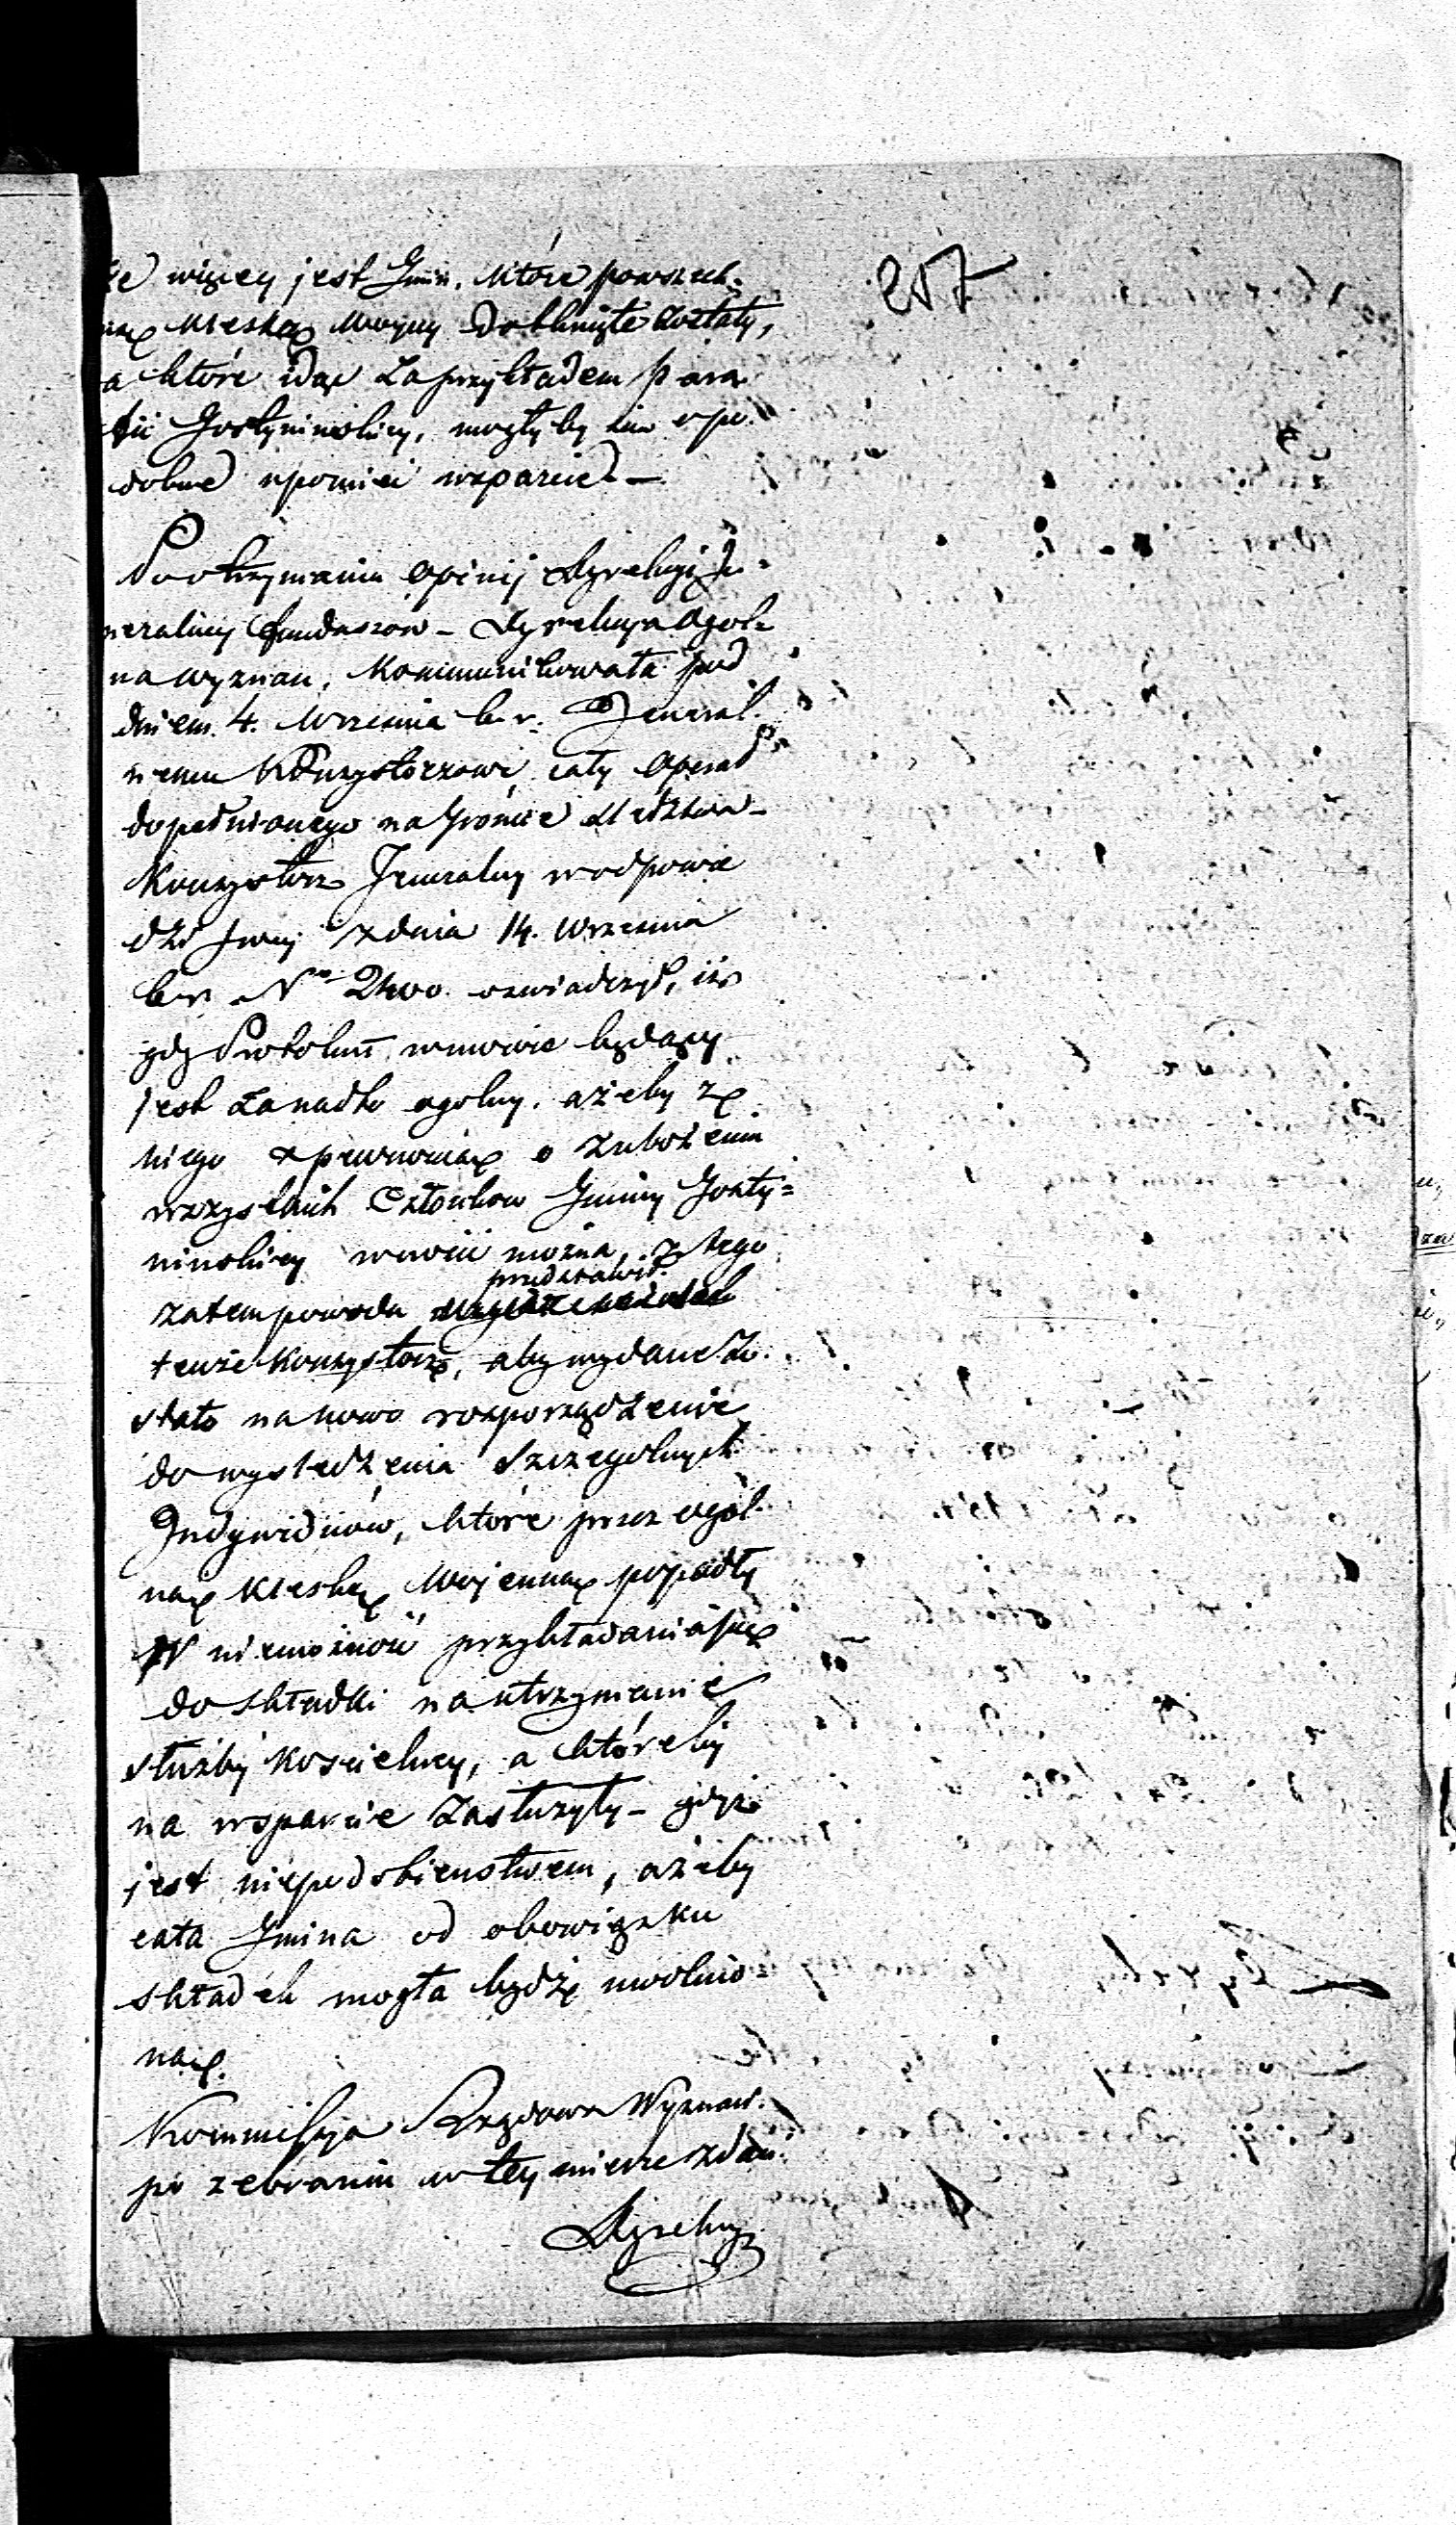 257
że więcey jest Gmin, które powszech-
ną klęską Woyny dotknięte zostały,
a które idąc za przykładem para
fii Gostyninskiey, mogłyby się o po-
dobne upomnieć wsparcie. —
Po otrzymaniu opinij Dyrekcyi Je-
neralney funduszow - Dyrekcya Ogol-
na wyznan, kommunikowała pod
dniem 4. Września b. r. Jeneral-
nemu Konsystorzowi cały operat
dopełnionego na gróncie śledztwa -
Konsystorz Jeneralny w odpowie
dzi swej z dnia 14. Września
b. r. No oswiadczył, iż
gdy Protokuł w mowie będący
jest zanadto ogolny, ażeby z
niego o zubożeniu
wszystkich Członkow Gminy Gosty=
ninskiey wnosić można, z tego
przedstawił
zatem powodu
tenże Konsystorz, aby wydane zo-
stało na nowo rozporządzenie
do wysledzenia szczegolnych
Indywiduów, które przez ogól-
ną klęskę Wojenną popadły
w niemożność przykładania się
do składki na utrzymanie
służby Koscielney, a któreby
na wsparcie zasłużyły - gdyż
jest niepodobieństwem, ażeby
cała Gmina od obowiązku
składek mogła bydź uwolnio
ną.
Kommissya Rządowa Wyznań.
po zebraniu w tey mierze zdań
Dyrekcyi